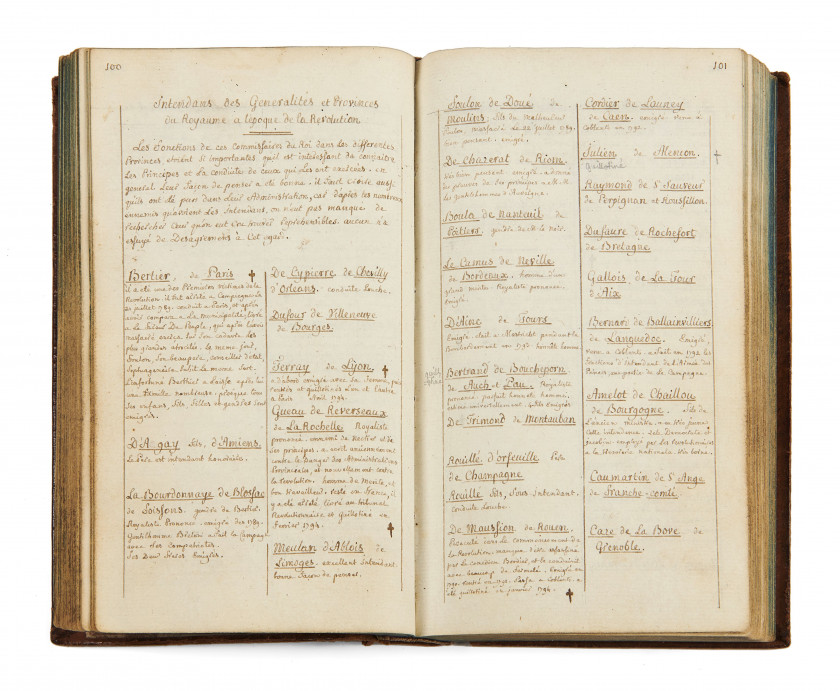 100
Intendans des Generalités et Provinces
du Royaume a l'époque de la Revolution
Les fonctions de ces Commissaires du Roi dans les differentes
Provinces, étoient si importantes qu'il est interessant de connaitre
les Principes et la conduite de ceux qui les ont exercées. en
general leur façon de penser a été bonne. il faut croire aussi
qu'ils ont de purs dans leur Administration, car d'après les nombreux
ennemis qu'avoient les Intendans, on n'eut pas manqué de
rechercher ceux qu'on eut trouvés reprehensibles. aucun n'a
essuyé de Desagremens a cet égard.
Bertier, de Paris
il a été une des Premieres victimes de la
Revolution. il fut arreté a Compiegne le
juillet 1789. conduit a Paris, et après
avoir comparu a la Municipalité, livré
a la fureur du Peuple, qui après l'avoir
massacré exerça sur son cadavre les
plus grandes atrocités. le meme sort,
Foulon, son beaupere, conseiller d'état,
septuagenaire, subit le meme sort.
L'infortuné Berthier a laissé après lui
une famille nombreuse. presque tous
ses enfans, fils, filles et gendres sont
emigrés.
D'Agay fils, d'Amiens.
Le Pere est intendant honoraire.
La Bourdonnaye de Blossac
de Soissons, gendre de Bertier.
Royaliste Prononcé. emigré dès 1789.
Gentilhomme Breton a fait la Campagne
avec ses compatriotes.
Ses deux freres Emigrés.
De Cypierre de Chevilly
d'Orleans. conduite louche.
Dufour de Villeneuve
de Bourges.
Terray de Lyon,
d'abord emigré avec sa femme, puis
rentrés et guillotinés l'un et l'autre
a Paris Avril 1794.
Gueau de Reverseaux
de La Rochelle Royaliste
prononcé, ennemi de Necker et de
ses principes, a écrit anciennement
contre le Danger des Administrations
Provinciales, et nouvellement contre
la Revolution. homme de merite, et
bon travailleur, resté en France, il
y a été arreté, livré au tribunal
Revolutionnaire et guillotiné en
fevrier 1794.
Meulan d'Ablois de
Limoges. excellent Intendant.
bonne façon de penser.
101
Foulon de Doué de
Moulins, fils du malheureux
Foulon, massacré le 22 juillet 1789.
De Chazerat de Riom.
Royaliste prononcé. emigré. a donné
des preuves de ses principes a
les gentilshommes d'Auvergne.
Boula de Nanteuil de
Poitiers, gendre de
Le Camus de Neville
de Bordeaux. homme d'un
grand merite. Royaliste prononcé.
emigré.
D'Aine de Tours
Emigré. étoit a Maestricht pendant le
Bombardement en 1793. honnête homme
Bertrand de Boucheporn
de Auch et Pau. Royaliste
prononcé, parfait honnete homme,
estimé universellement. 4 fils Emigrés
De Trimond de Montauban
Rouillé d'orfeuille Pere
de Champagne
Rouillé fils, sous Intendant.
conduite louche
De Maussion de Rouen.
Persecuté lors du commencement de
la Revolution, manqua d'etre assassiné
par le comedien Bordier, et se conduisit
avec beaucoup de fermeté. Emigré en
1790. rentré en 1792. Passé a Coblents. a
été guillotiné en janvier 1794.
Cordier de Launey
de Caen. emigré. venu a
Coblents en 1792.
Julien de Alencon.
guillotiné
Raymond de St Sauveur
de Perpignan et Roussillon.
Dufaure de Rochefort
de Bretagne
Gallois de La Tour
d'Aix
Bernard de Ballainvilliers
de Languedoc. Emigré,
venu a Coblents. a fait en 1792 les
fonctions d'Intendant de l'Armée des
Princes, une partie de la Campagne.
Amelot de Chaillou
de Bourgogne. fils de
l'ancien ministre.
Cette intendance. Sale Democrate et
Jacobin employé par les Revolutionnaires
a la tresorerie nationale.
Caumartin de St Ange
de Franche-comté.
Caze de La Bove de
Grenoble.